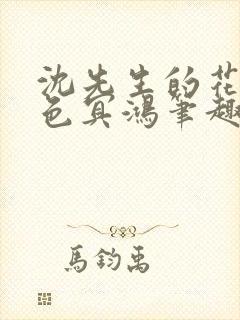 沈先生的花
色冥鴻筆趣
馬鈞禹